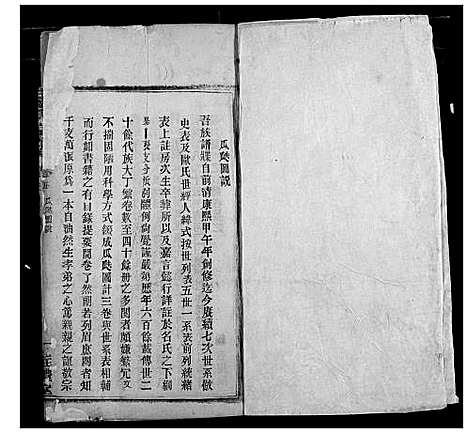 瓜瓞圖説
吾族譜牒自前清康熙甲午年創修迄今賡續七次世系倣
史表及歐氏世經人緯式按世列表五世一系表前列統緒
表上註房次生卒葬所以及嘉言懿行詳註於名氏之下綱
分體例綦覺謹嚴第歷年六百餘載傳世二
十餘代族大丁蕃卷數至四十餘册之多閱者頗嫌繁冗爰
不揣固陋用科學方式錣成瓜瓞圖計三卷與世系表相輔
而行如書籍之有目錄提要開卷了然前若列眉庶閱者知
千支萬派原爲一本自油然生孝弟之心篤親親之誼敦宗
瓜瓞圖説